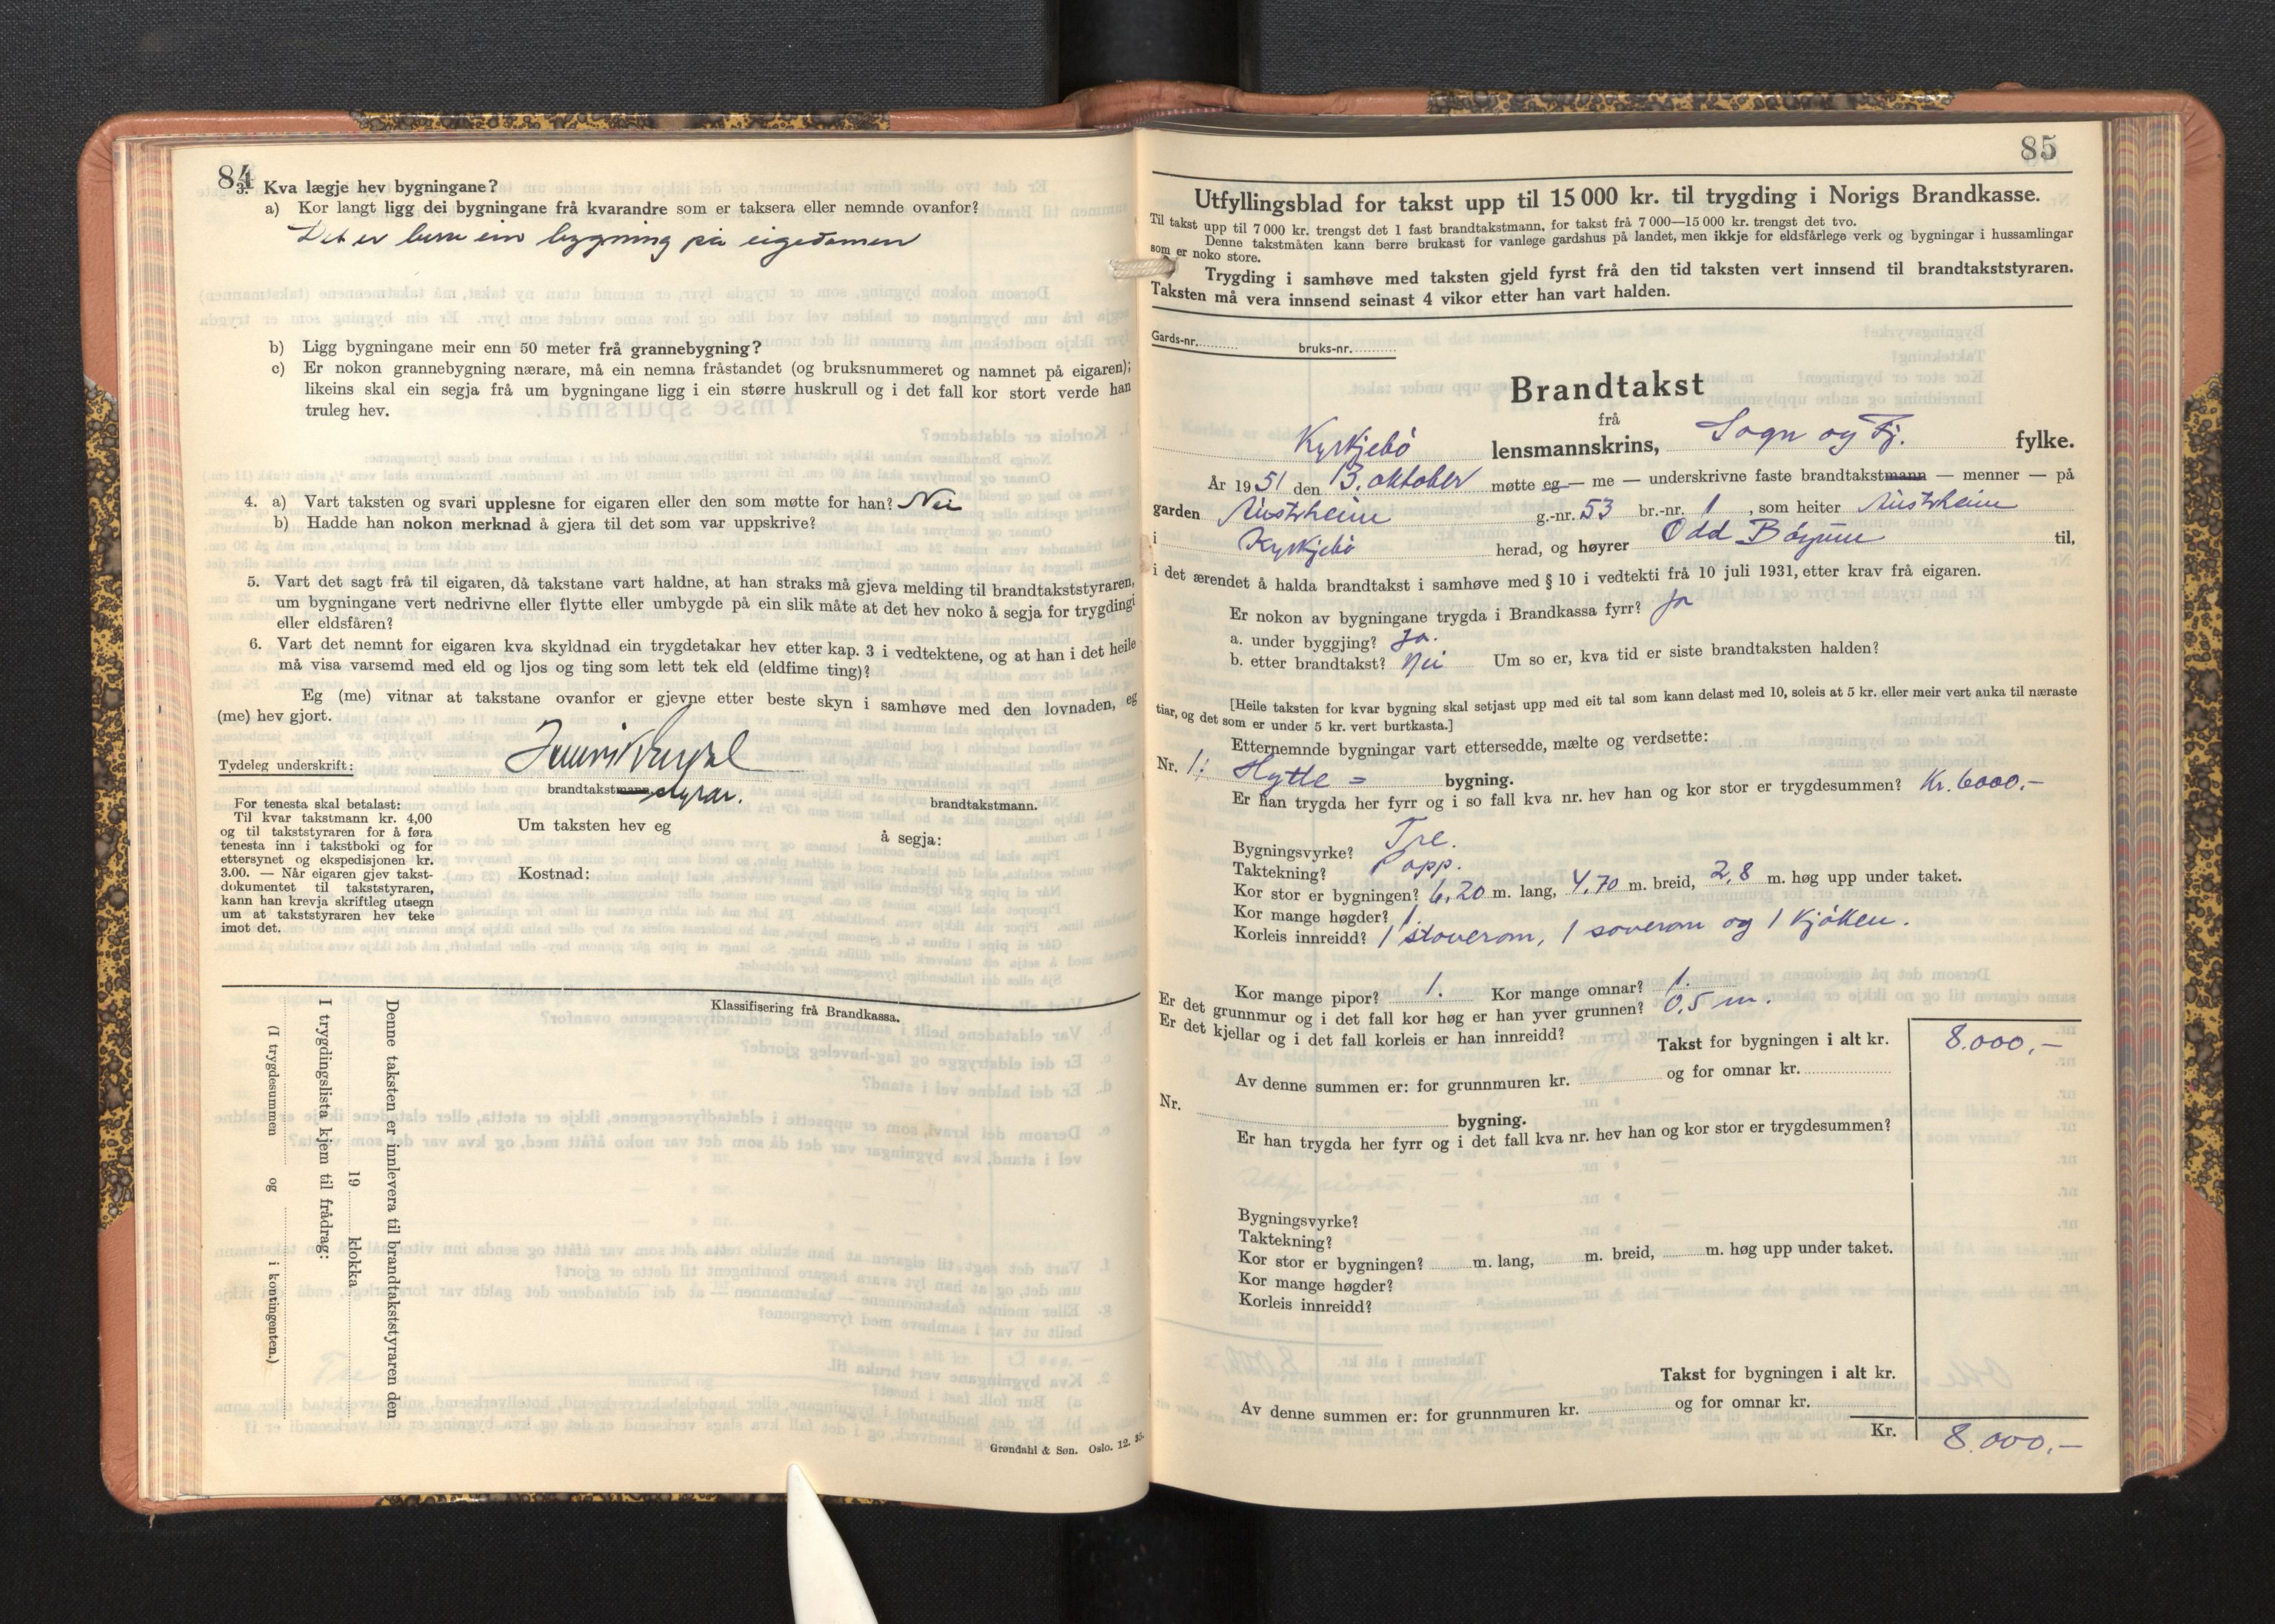 84
3. Kva lægje hev bygningane?
a) Kor langt ligg dei bygningane frå kvarandre som er taksera eller nemnde ovanfor?
Det er berre ein bygning på eigedomen
b) Ligg bygningane meir enn 50 meter frå grannebygning?
c) Er nokon grannebygning nærare, må ein nemna fråstandet (og bruksnummeret og namnet på eigaren);
likeins skal ein segja frå um bygningane ligg i ein større huskrull og i det fall kor stort verde han
truleg hev.
4. a) Vart taksten og svari upplesne for eigaren eller den som møtte for han? Nei
b) Hadde han nokon merknad å gjera til det som var uppskrive?
5. Vart det sagt frå til eigaren, då takstane vart haldne, at han straks må gjeva melding til brandtakststyraren,
um bygningane vert nedrivne eller flytte eller umbygde på ein slik måte at det hev noko å segja for trygdingi
eller eldsfåren?
6. Vart det nemnt for eigaren kva skyldnad ein trygdetakar hev etter kap. 3 i vedtektene, og at han i det heile
må visa varsemd med eld og ljos og ting som lett tek eld (eldfime ting)?
Eg (me) vitnar at takstane ovanfor er gjevne etter beste skyn i samhøve med den lovnaden, eg
(me) hev gjort.
Tydeleg underskrift:
brandtakstmann styrar.
brandtakstmann.
For tenesta skal betalast:
Til kvar takstmann kr. 4,00
og til takststyraren for å føra
tenesta inn i takstboki og for
ettersynet og ekspedisjonen kr.
3.00. — Når eigaren gjev takst-
dokumentet til takststyraren,
kann han krevja skriftleg utsegn
um at takststyraren hev teke
imot det.
Um taksten hev eg å segja:
Kostnad:
Klassifisering frå Brandkassa.
Denne taksten er innlevera til brandtakststyraren den
19 klokka
I trygdingslista kjem til frådrag:
(I trygdesummen og i kontingenten.)
Grøndahl & Søn. Oslo. 12. 35.
85
Utfyllingsblad for takst upp til 15 000 kr. til trygding i Norigs Brandkasse.
Til takst upp til 7 000 kr. trengst det 1 fast brandtakstmann, for takst frå 7 000—15 000 kr. trengst det tvo.
Denne takstmåten kann berre brukast for vanlege gardshus på landet, men ikkje for eldsfårlege verk og bygningar i hussamlingar
som er noko store.
Trygding i samhøve med taksten gjeld fyrst frå den tid taksten vert innsend til brandtakststyraren.
Taksten må vera innsend seinast 4 vikor etter han vart halden.
Gards-nr. bruks-nr.
Brandtakst
frå
Kyrkjebø lensmannskrins, Sogn og Fj. fylke.
År 1951 den 13. oktober møtte eg — me — underskrivne faste brandtakstmann — menner — på
garden Austrheim g.-nr. 53 br.-nr. 1, som heiter Austrheim
i Kyrkjebø herad, og høyrer Odd Børum til,
i det ærendet å halda brandtakst i samhøve med § 10 i vedtekti frå 10 juli 1931, etter krav frå eigaren.
Er nokon av bygningane trygda i Brandkassa fyrr? Ja
a. under byggjing? Ja.
b. etter brandtakst? Nei Um so er, kva tid er siste brandtaksten halden?
[Heile taksten for kvar bygning skal setjast upp med eit tal som kann delast med 10, soleis at 5 kr. eller meir vert auka til næraste
tiar, og det som er under 5 kr. vert burtkasta.]
Etternemnde bygningar vart ettersedde, mælte og verdsette:
Nr. 1: Hytte = bygning.
Er han trygda her fyrr og i so fall kva nr. hev han og kor stor er trygdesummen? Kr. 6000.-
Bygningsvyrke? Tre.
Taktekning? Papp.
Kor stor er bygningen? 6,20 m. lang, 4,70 m. breid, 2,8 m. høg upp under taket.
Kor mange høgder? 1.
Korleis innreidd? 1 stoverom, 1 soverom og 1 kjøkken.
Kor mange pipor? 1. Kor mange omnar? 1.
Er det grunnmur og i det fall kor høg er han yver grunnen? 0,5 m.
Er det kjellar og i det fall korleis er han innreidd?
Takst for bygningen i alt kr. 8.000.-
Av denne summen er: for grunnmuren kr. og for omnar kr.
Nr. bygning.
Er han trygda her fyrr og i det fall kva nr. hev han og kor stor er trygdesummen?
Bygningsvyrke?
Taktekning?
Kor stor er bygningen? m. lang, m. breid, m. høg upp under taket.
Kor mange høgder?
Korleis innreidd?
Takst for bygningen i alt kr.
Av denne summen er: for grunnmuren kr. og for omnar kr.
Kr. 8.000.-